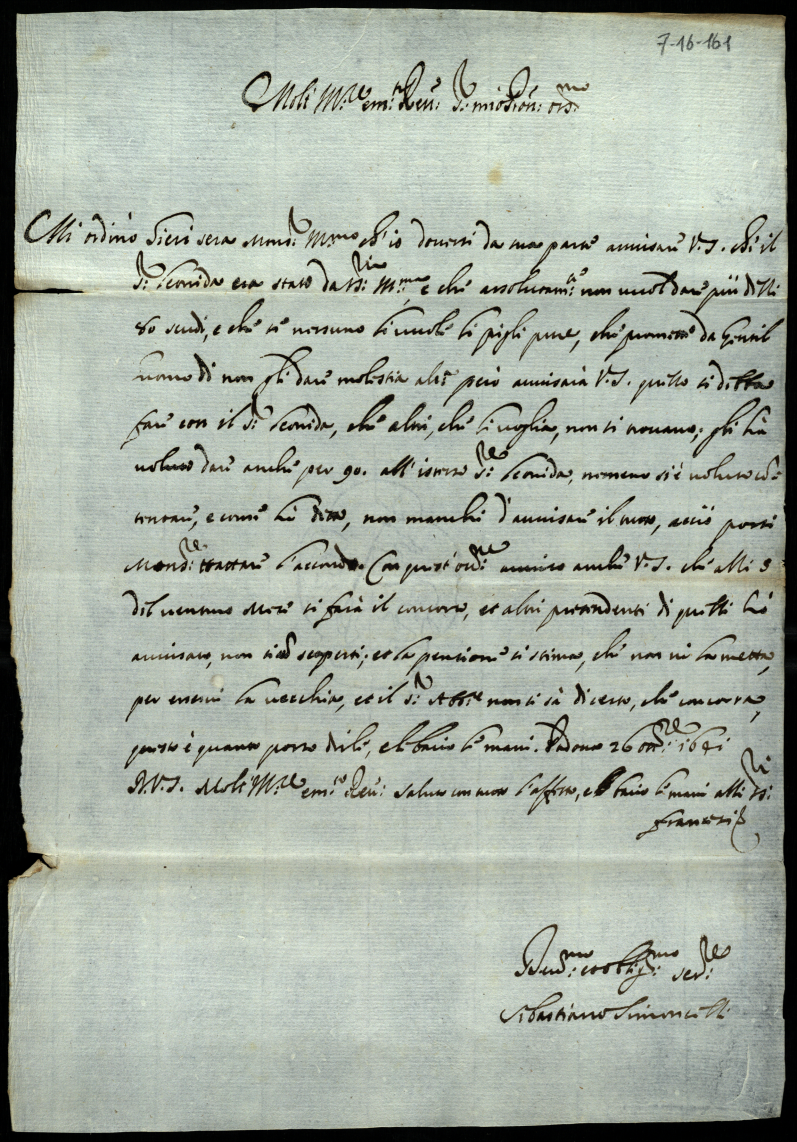 7-16-161
Molt Ill.re em.to Reu: S.r mio Pron: oss.mo
Mi ordinò hieri sera Mons.r Ill.mo ch'io douessi da sua parte auuisare V.S. che il
S.r era stato da S.S. Ill.ma e che assolutam.te non uuol dare più delli
80 scudi, e che se nessuno li uuole li pigli pure, che promette da Gentil
huomo di non gli dare molestia però auuisarà V.S. quello si debba
fare con il S.r che altri, che li uoglia, non si trouano; gli hà
uoluto dare anche per 90. all'istesso S.re nemeno si è uoluto con=
tentare, e come hò detto, non manchi d'auuisare il tutto, acciò possi
Mons.re trattare l'accordo. Con quest'ord.re auuiso anche V.S. che alli 3
del uenturo Mese si farà il concorso, et altri pretendenti di quelli hò
auuisato, non si scoperti; et la pensione si stima, che non ui la metta,
per esserui la uecchia, et il S.r non si sà di certo, che concorra,
questo è quanto posso dirle, e le bacio le mani. 26 ott.re 1641
D.V.S. Molt Ill.re em.to Reu: saluto con tutto l'affetto, e bacio le mani alli SS.ri
Francesi
Deu.mo et obblig.mo ser.re
Sebastiano Simoncelli